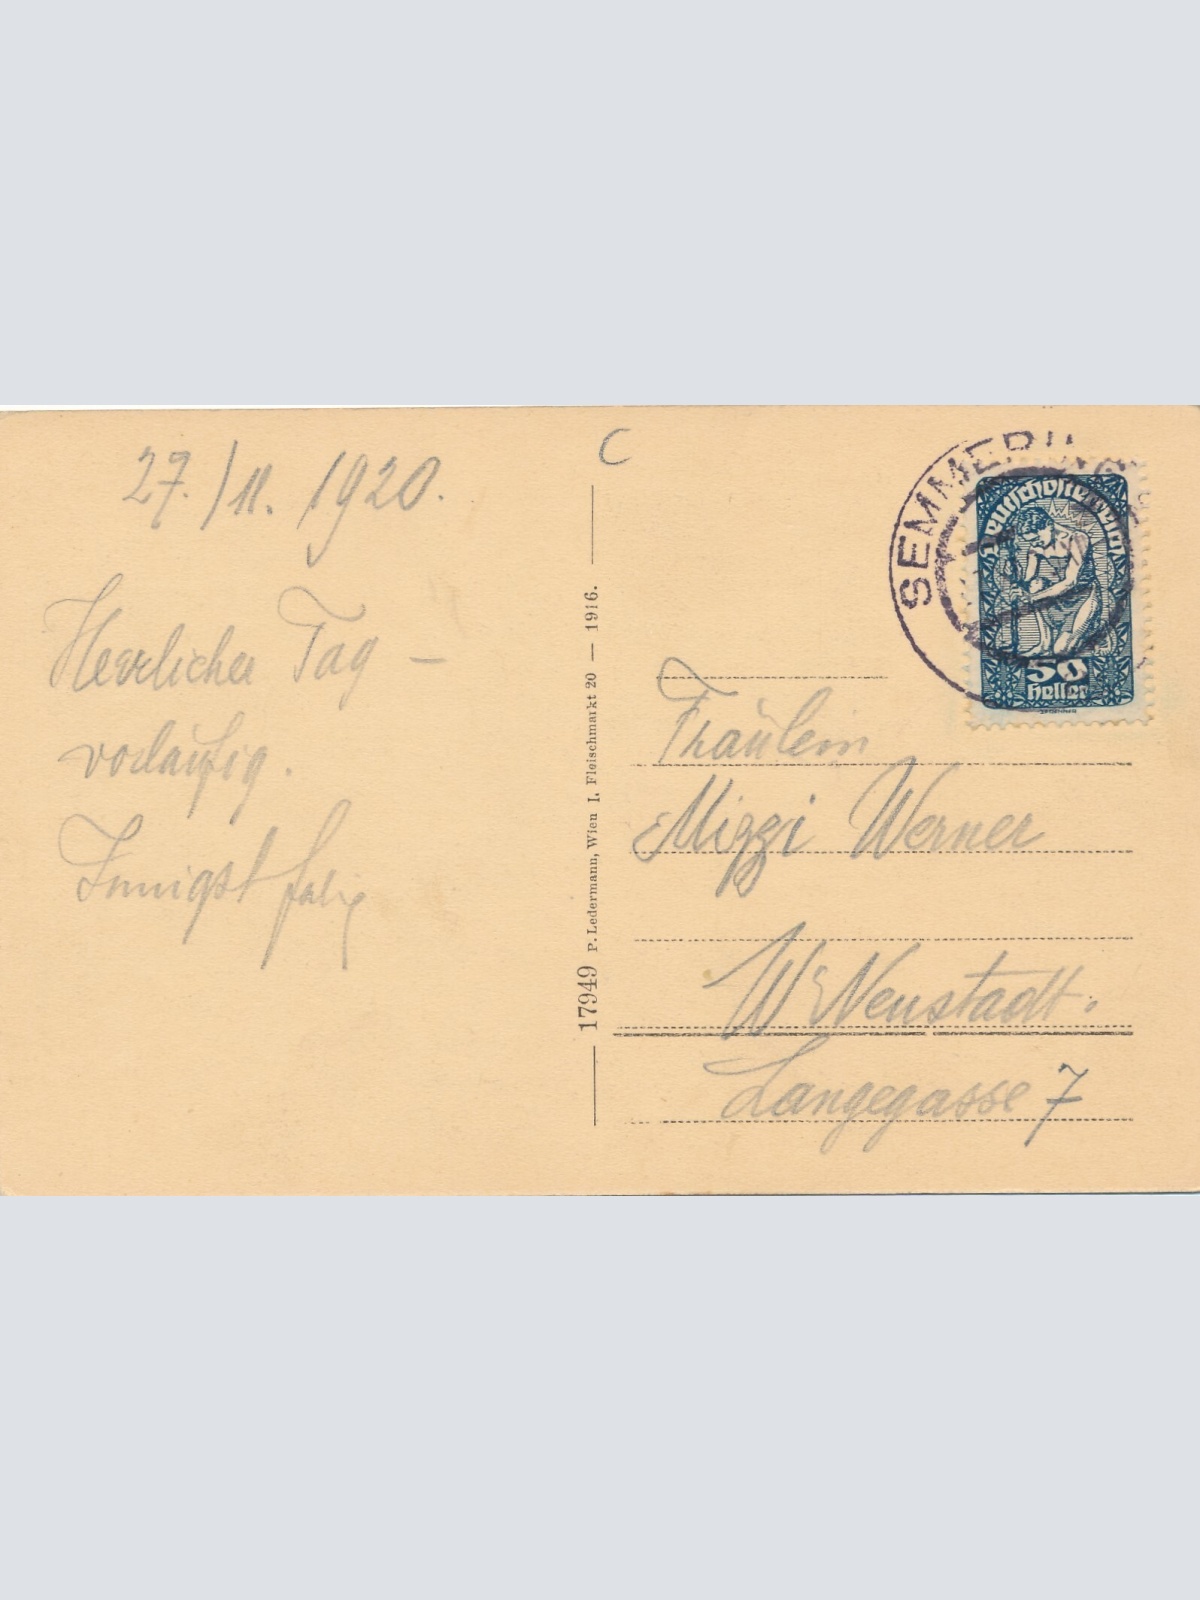 27./11. 1920.
Herrlicher Tag —
vorläufig.
Innigst
C
17949 P. Ledermann, Wien I, Fleischmarkt 20 — 1916.
SEMMERING
Deutschösterreich
50
Heller
Fräulein
Mizzi Werner
W. Neustadt.
Langegasse 7